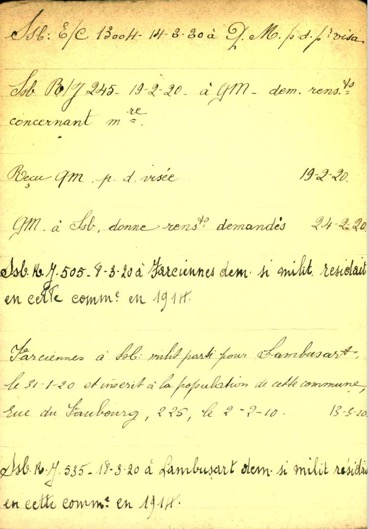 Ssb. E/C 13004 - 14-3-30 à D. M. p. d. pr visa.
Ssb R/J 245 - 19-2-20. à GM - dem. rensts
concernant mre.
Reçu GM p. d. visée 19-2-20.
GM. à Ssb, donne rensts demandés 24-2-20.
Ssb. R. J. 505 - 8-3-20 à Farciennes dem. si milit. résidait
en cette comme en 1914.
Farciennes à Ssb: milit parti pour Lambusart,
le 31-1-20 et inscrit à la population de cette commune,
Rue du Faubourg, 225, le 2-2-10. 13-3-10.
Ssb. R. J. 535 - 18-3-20 à Lambusart dem. si milit résidait
en cette comme en 1914.